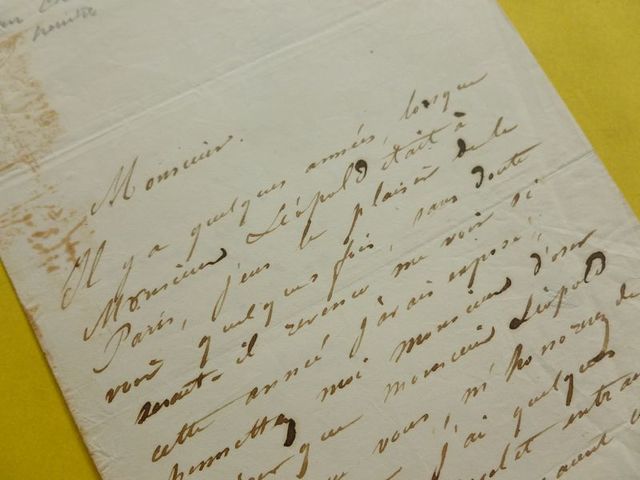 peintre
Monsieur.
Il y a quelques années, lorsque
Monsieur Léopold était à
Paris, j'eus le plaisir de le
voir quelques fois, sans doute
serait-il revenu me voir si
cette année j'avais exposé,
permettez moi monsieur d'oser
que monsieur Léopold
vous, m'honorez de
j'ai quelques
et entra